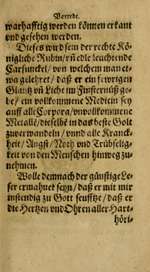 Vorrede.
warhafftig werden können erkant
und gesehen werden.
Dieses wird sein der rechte Kö-
nigliche Rubin/ uñ edle leuchtende
Carfunckel/ von welchem man et-
wa gelehret/ daß er ein fewrigen
Glantz uñ Liecht im Finsternüß ge-
be/ ein vollkommene Medicin sey
auff alle Corpora/ unvollkommene
Metalli/ dieselbt in das beste Golt
zu verwandeln/ und alle Kranck-
heit/ Angst/ Noth und Trübselig-
keit von den Menschen hinweg zu-
nehmen.
Wolle demnach der günstige Le-
ser ermahnet seyn/ daß er mit mir
instendig zu Gott seufftze/ daß er
die Hertzen und Ohren aller Hart-
höri-